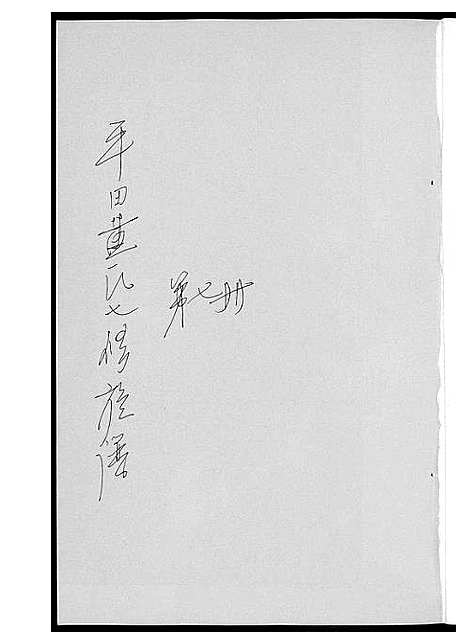 平田董氏七修族谱
第七册